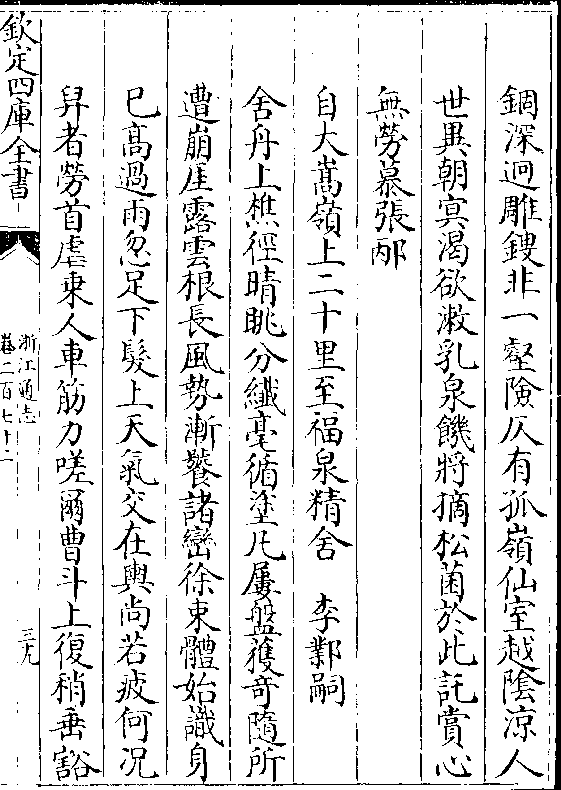 錭深迥雕鎪非一壑險仄有孤嶺仙室越陰涼人
世異朝㝠渴欲潄乳泉饑將摘松菌於此託賞心
無勞慕張邴
自大嵩嶺上二十里至福泉精舍 李鄴嗣
舍舟上樵徑晴眺分纖毫循塗凡屢盤獲奇隨所
遭崩崖露雲根長風勢漸饕諸巒徐束體始識身
已高過雨忽足下髮上天氣交在輿尚若疲何况
舁者勞首虐乗人車筋力嗟爾曹斗上復稍垂豁
欽定四庫全書
浙江通志
卷二百七十二
三九